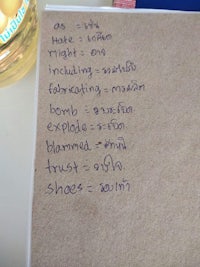 as = เช่น
Hate = เกลียด
Might = อาจ
including = รวมทั้ง
fabricating = การผลิต
bomb = ระเบิด
explode = ระเบิด
blammed =
trust = ไว้ใจ
shoes = รองเท้า